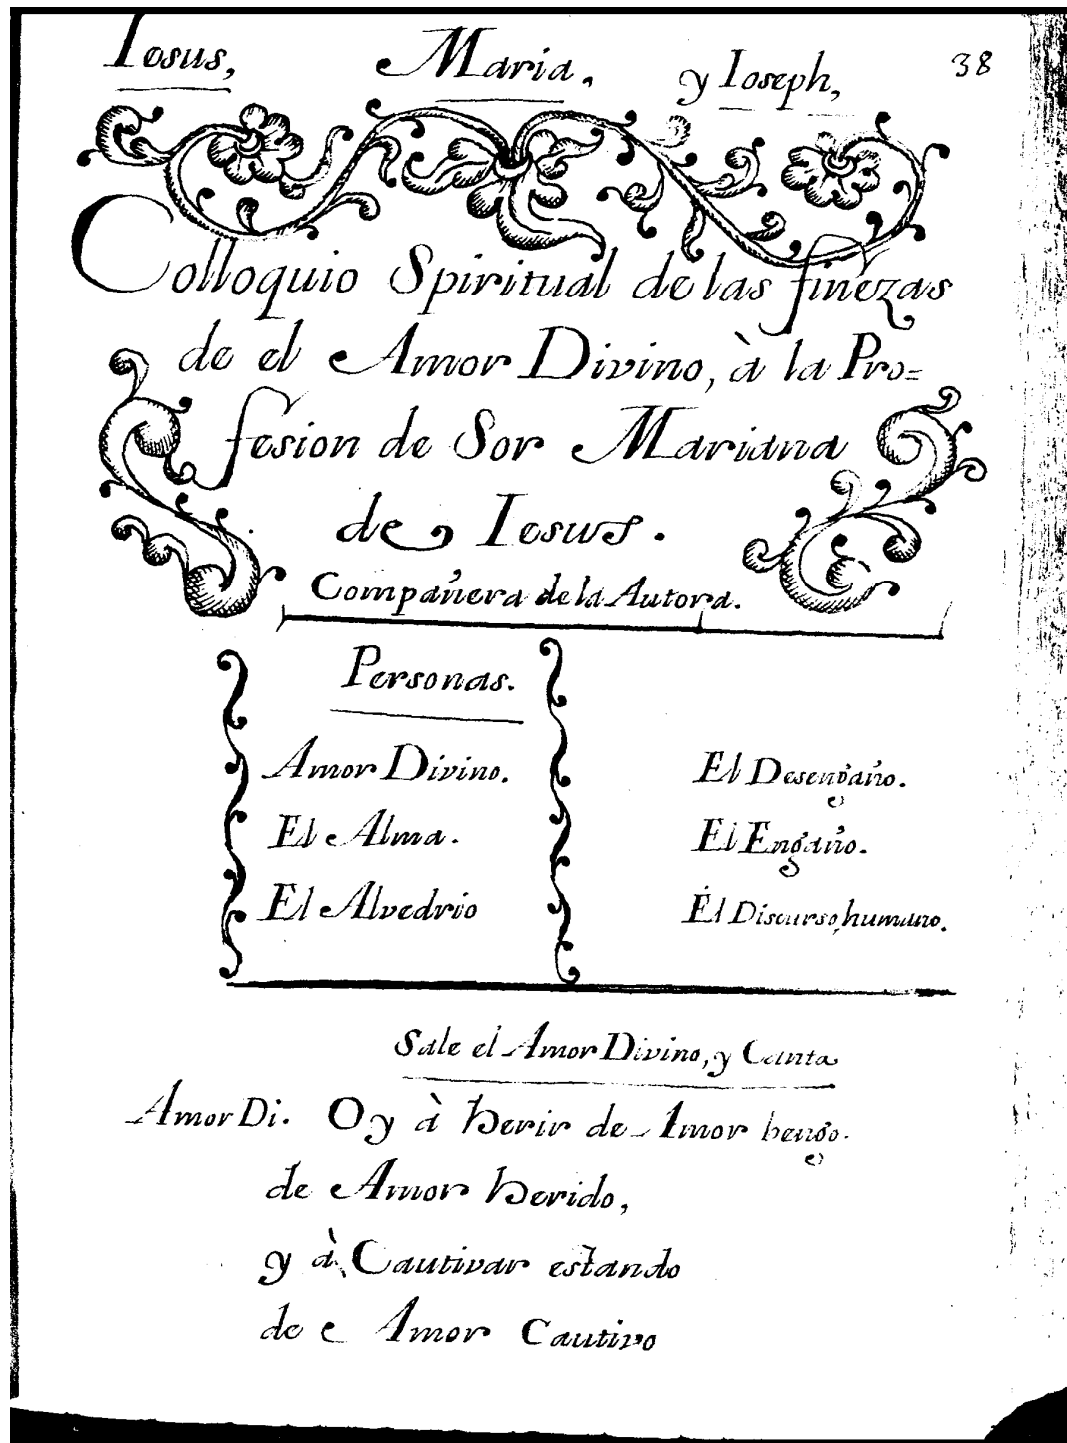 Iesus, Maria, y Ioseph, 38
Colloquio Spiritual de las finezas
de el Amor Divino, à la Pro=
fesion de Sor Mariana
de Iesus.
Compañera de la Autora.
Personas.
Amor Divino. El Desengaño.
El Alma. El Engaño.
El Alvedrio El Discurso humano.
Sale el Amor Divino, y Canta
Amor Di. Oy à herir de Amor bengo.
de Amor herido,
y à Cautivar estando
de Amor Cautivo